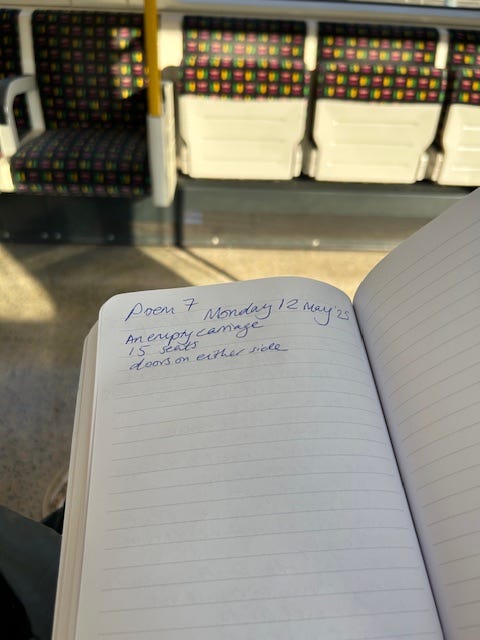 Poem 7 Monday 12 May 25
An empty carriage
15 seats
doors on either side